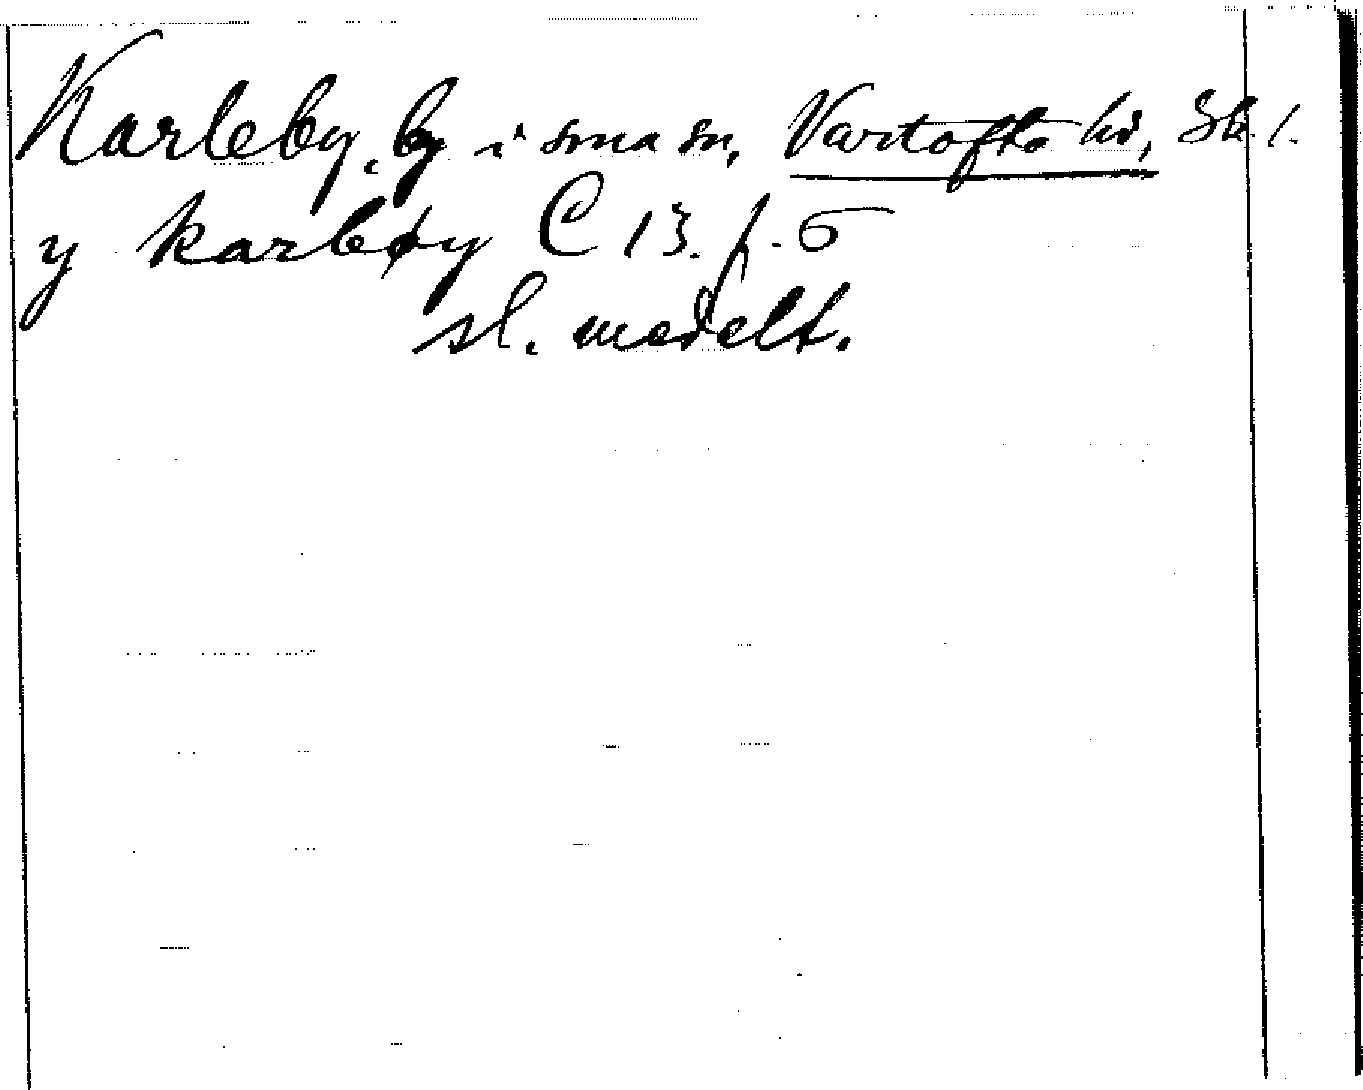 Karleby, by i sma sn, Vartofta hd, Sk. l.
y karleby C 13. f. 5
sl. medelt.